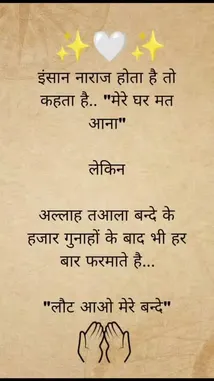 इंसान नाराज होता है तो
कहता है.. "मेरे घर मत
आना"
लेकिन
अल्लाह तआला बन्दे के
हजार गुनाहों के बाद भी हर
बार फरमाते है...
"लौट आओ मेरे बन्दे"